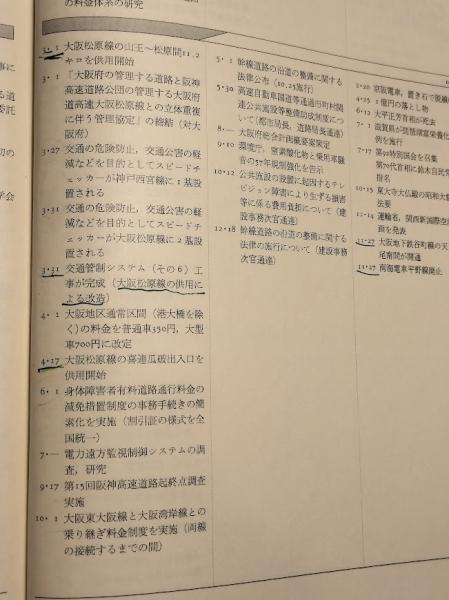 の料金体系の研究
3・1 大阪松原線の山王〜松原間11.2
キロを供用開始
3・1 「大阪府の管理する道路と阪神
高速道路公団の管理する大阪府
道高速大阪松原線との立体重複
に伴う管理協定」の締結（対大
阪府）
3・27 交通の危険防止，交通公害の軽
減などを目的としてスピードチ
ェッカーが神戸西宮線に1基設
置される
3・31 交通の危険防止，交通公害の軽
減などを目的としてスピードチ
ェッカーが大阪松原線に2基設
置される
3・31 交通管制システム（その6）工
事が完成（大阪松原線の供用に
よる改造）
4・1 大阪地区通常区間（港大橋を除
く）の料金を普通車350円，大型
車700円に改定
4・27 大阪松原線の喜連瓜破出入口を
供用開始
6・1 身体障害者有料道路通行料金の
減免措置制度の事務手続きの簡
素化を実施（割引証の様式を全
国統一）
7・— 電力遠方監視制御システムの調
査，研究
9・17 第15回阪神高速道路起終点調査
実施
10・1 大阪東大阪線と大阪湾岸線との
乗り継ぎ料金制度を実施（両線
の接続するまでの間）
5・1 幹線道路の沿道の整備に関する
法律公布（10.25施行）
5・30 高速自動車国道等通過市町村関
連公共施設等整備助成制度につ
いて（都市局長，道路局長通達）
8・— 大阪府総合計画概要案策定
9・10 環境庁，窒素酸化物と乗用車騒
音の57年規制強化を告示
10・12 公共施設の設置に起因するテレ
ビジョン障害により生ずる損害
等に係る費用負担について（建
設事務次官通達）
12・18 幹線道路の沿道の整備に関する
法律の施行について（建設事務
次官通達）
2・20 京阪電車，置き石で脱線
4・25 1億円の落とし物
6・12 大平正芳首相が死去
7・1 滋賀県が琵琶湖富栄養化
例を施行
7・17 第92特別国会を召集
第70代首相に鈴木自民党
指名
10・15 東大寺大仏殿の昭和大
法要
11・14 運輸省，関西新国際空
画を発表
11・27 大阪地下鉄谷町線の天
尾南間が開通
11・27 南海電車平野線廃止